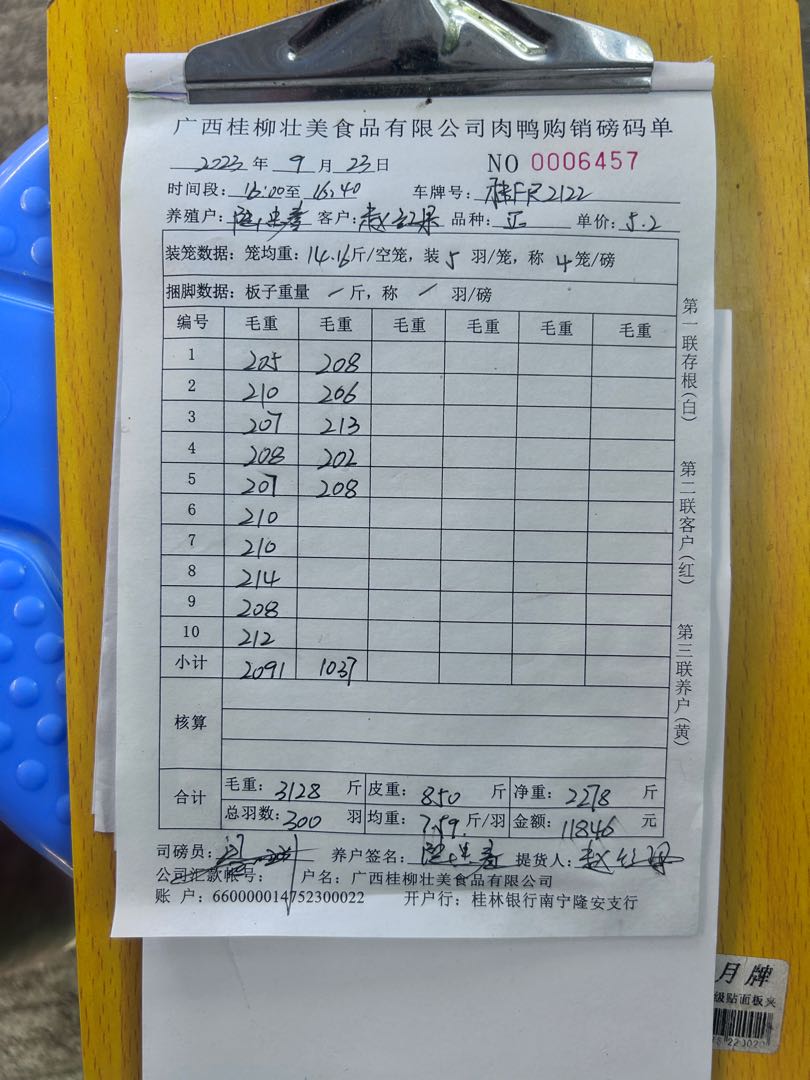 广西桂柳壮美食品有限公司肉鸭购销磅码单
2023年 9月 23日 NO 0006457
时间段: 16:00至 16:40 车牌号: 桂FR2122
养殖户: 客户: 赵红果 品种: 正 单价: 5.2
装笼数据: 笼均重: 14.16斤/空笼, 装 5 羽/笼, 称 4笼/磅
捆脚数据: 板子重量 / 斤, 称 / 羽/磅
编号 毛重 毛重 毛重 毛重 毛重 毛重
1 205 208
2 210 206
3 207 213
4 208 202
5 207 208
6 210
7 210
8 214
9 208
10 212
小计 2091 1037
核算
合计 毛重: 3128 斤 皮重: 850 斤 净重: 2278 斤
总羽数: 300 羽 均重: 7.59. 斤/羽 金额: 11846 元
司磅员: 养户签名: 提货人: 赵红果
公司汇款帐号: 户名: 广西桂柳壮美食品有限公司
账 户: 660000014752300022 开户行: 桂林银行南宁隆安支行
第一联存根(白)
第二联客户(红)
第三联养户(黄)
月牌
级贴面板夹